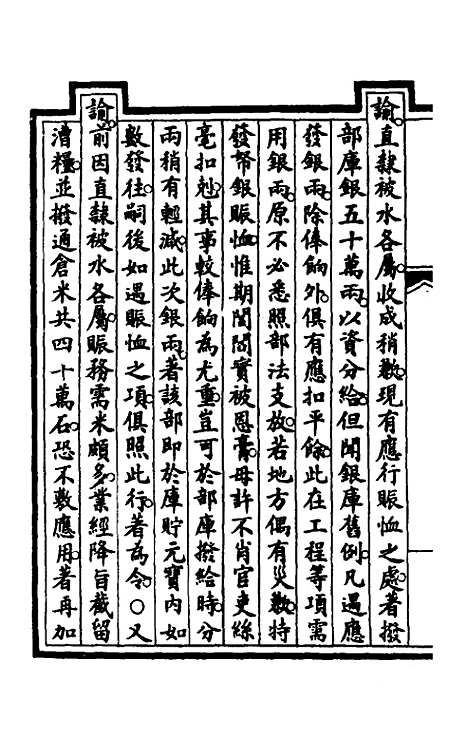 諭直隸被水各屬收成稍歉現有應行賑恤之處著撥
部庫銀五十萬兩以資分給但聞銀庫舊例凡遇應
發銀兩除俸餉外俱有應扣平餘此在工程等項需
用銀兩原不必悉照部法支放若地方偶有災歉特
發帑銀賑恤惟期閭閻實被恩膏毋許不肖官吏絲
毫扣剋其事較俸餉為尤重豈可於部庫撥給時分
兩稍有輕減此次銀兩著該部即於庫貯元寶內如
數發往嗣後如遇賑恤之項俱照此行著為令○又
諭前因直隸被水各屬賑務需米頗多業經降旨截留
漕糧並撥通倉米共四十萬石恐不敷應用著再加